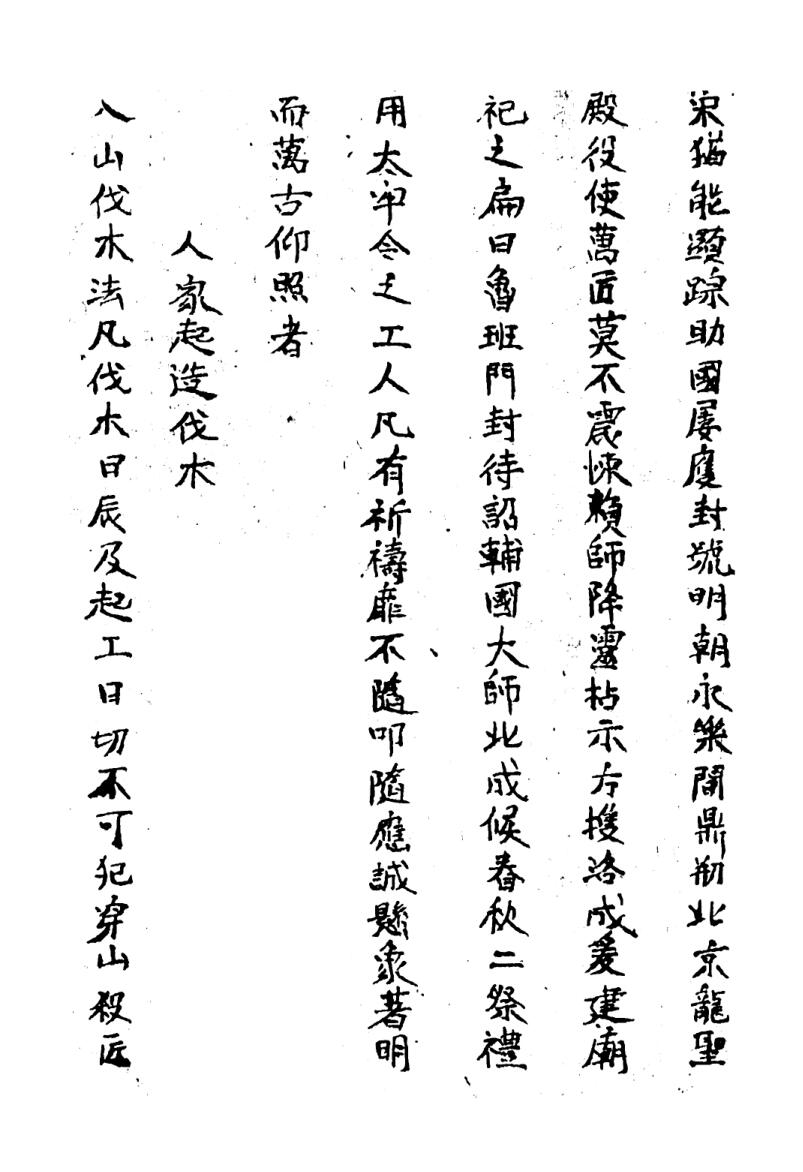 宋猫能顕踪助國屡膺封號明朝永樂間鼎剏北京龍聖
殿役使萬匠莫不震悚賴師降靈枯示方擭洛成爰建廟
祀之扁曰魯班門封待詔輔國大師北成候春秋二祭禮
用太牢令之工人凡有祈禱靡不隨叩隨應誠懸象著明
而萬古仰照者
人家起造伐木
入山伐木法凡伐木日辰及起工日切不可犯穿山殺匠